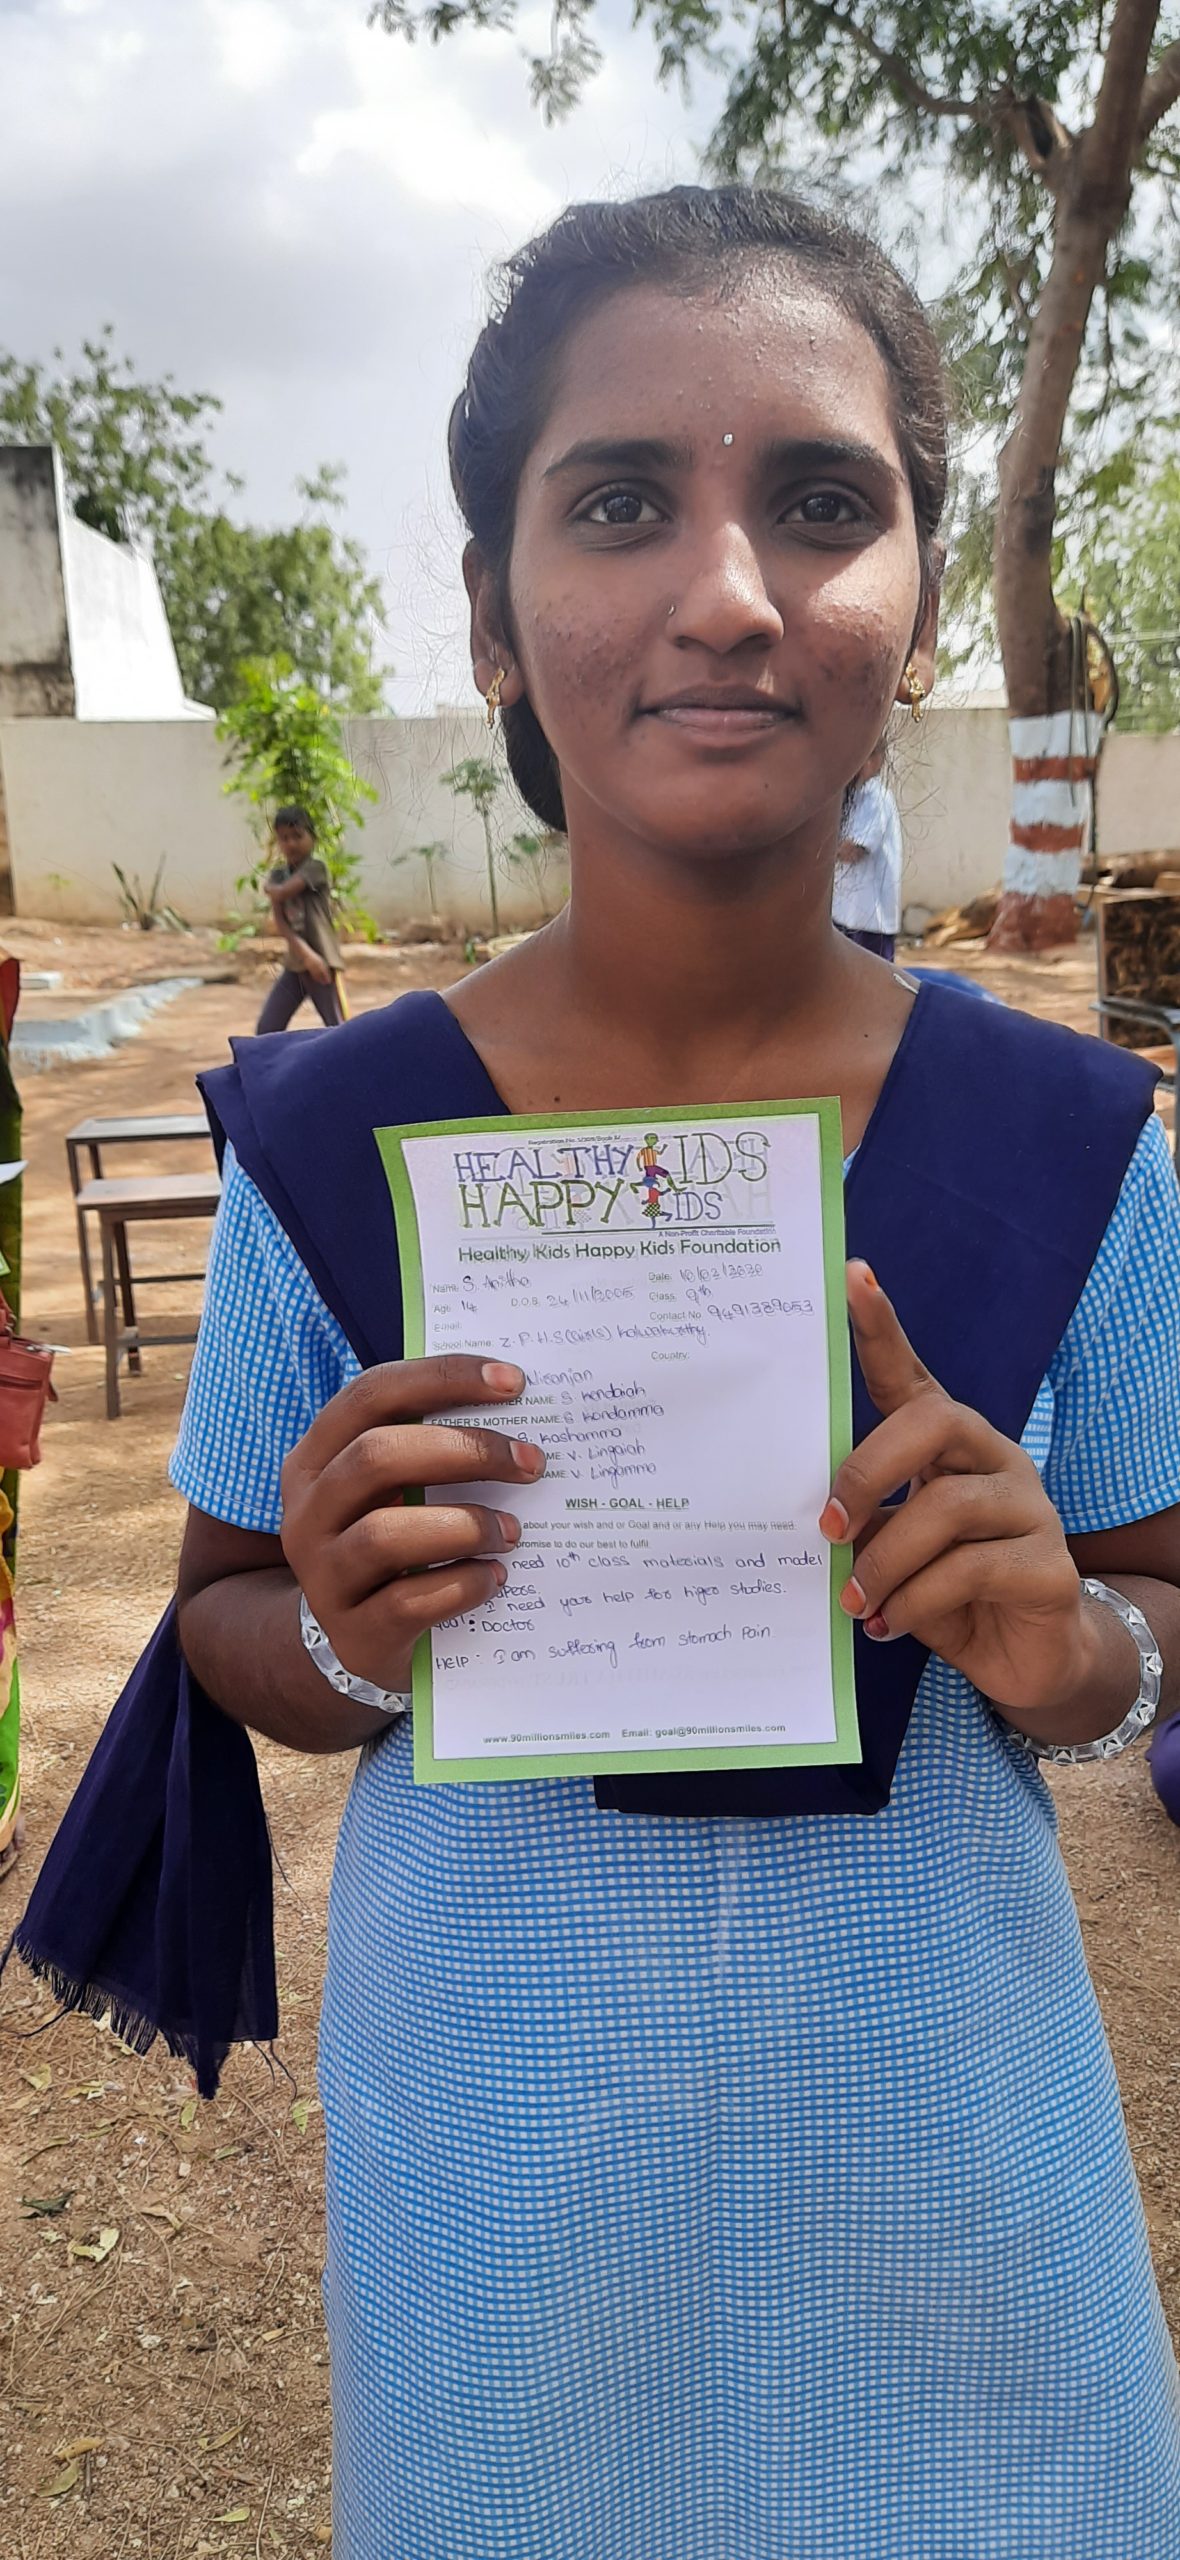 Registration No.
HEALTHY KIDS
HAPPY KIDS
A Non-Profit Charitable Foundation
Healthy Kids Happy Kids Foundation
Name: S. Anitha Date:
Age: 14 D.O.B. 24/11/2005 Class: 9th
E-mail: Contact No 9491389053
School Name: Z.P.H.S (Girls) Kalwakurthy.
Country:
Niranjan
NAME: S. Kondaiah
FATHER'S MOTHER NAME: S Kondamma
S. Kashamma
V. Lingaiah
V. Lingamma
WISH - GOAL - HELP
about your wish and or Goal and or any Help you may need.
promise to do our best to fulfil
need 10th class materials and model
I need your help for higer studies.
: Doctor
HELP : I am suffering from stomach Pain
www.90millionsmiles.com Email: goal@90millionsmiles.com